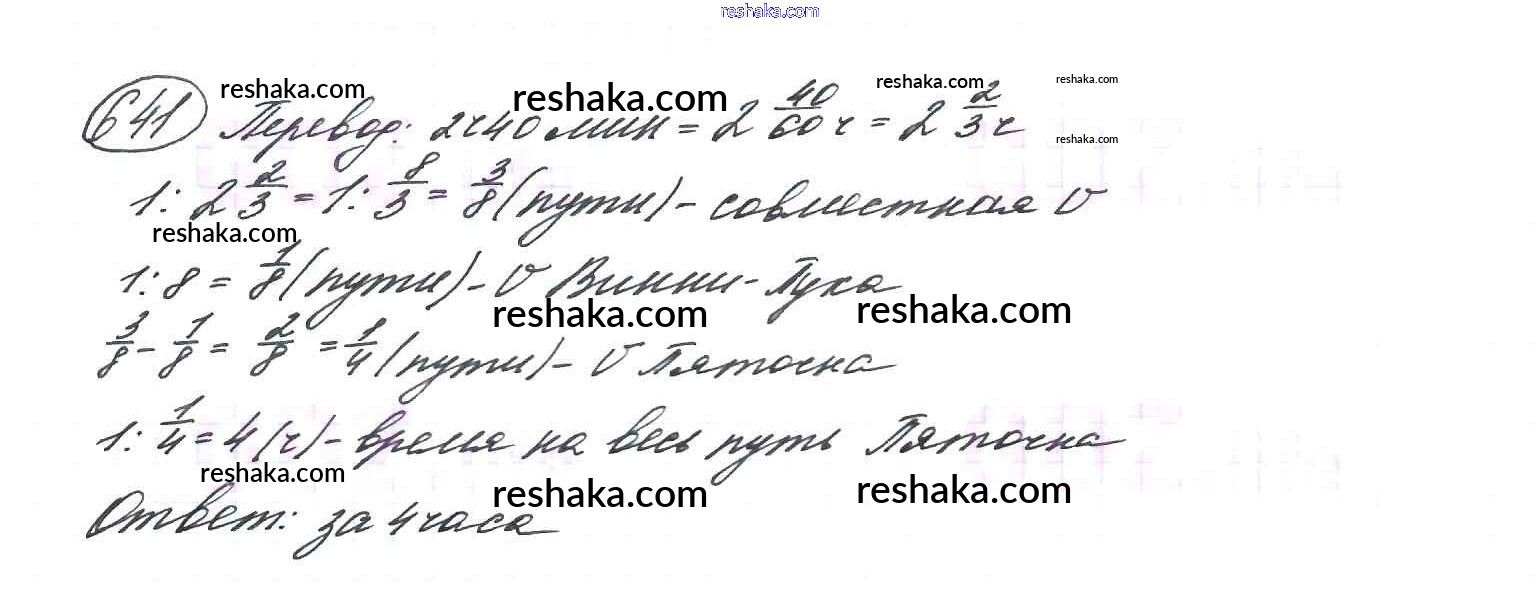 reshaka.com
641 Перевод: 2ч40мин = 2 40/60 ч = 2 2/3 ч
reshaka.com reshaka.com reshaka.com reshaka.com
reshaka.com
1 : 2 2/3 = 1 : 8/3 = 3/8 (пути) - совместная V
reshaka.com
1 : 8 = 1/8 (пути) - V Винни-Пуха
reshaka.com reshaka.com
3/8 - 1/8 = 2/8 = 1/4 (пути) - V Пяточка
1 : 1/4 = 4 (ч) - время на весь путь Пяточка
reshaka.com reshaka.com reshaka.com
Ответ: за 4 часа